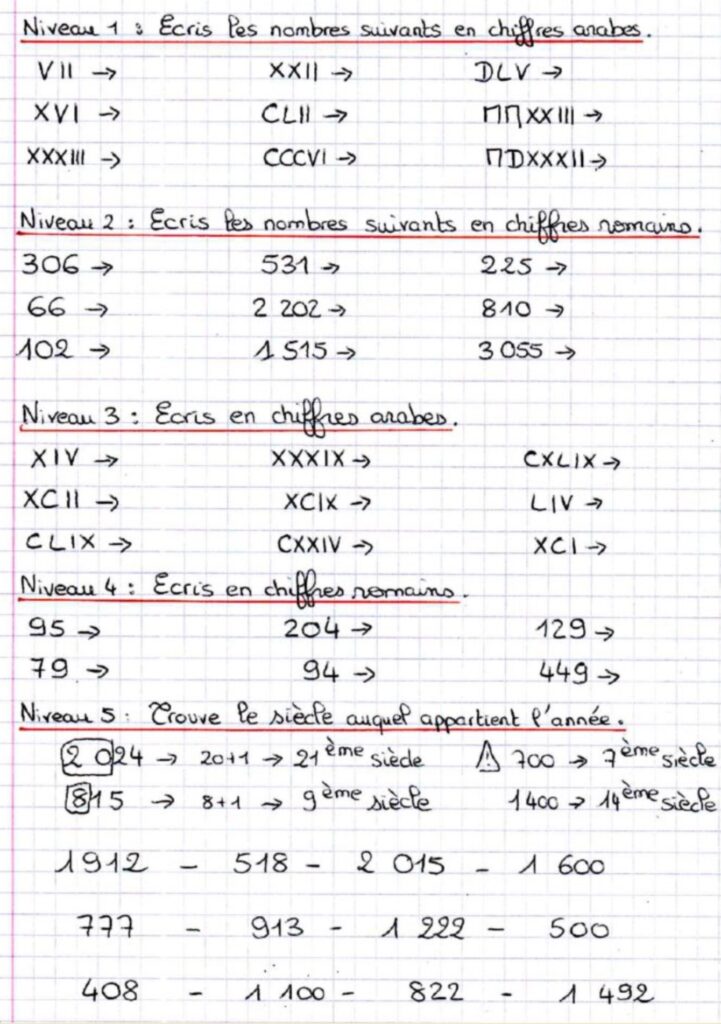 Niveau 1 : Ecris les nombres suivants en chiffres arabes.
VII → XXII → DLV →
XVI → CLII → MMXXIII →
XXXIII → CCCVI → MDXXXII →
Niveau 2 : Ecris les nombres suivants en chiffres romains.
306 → 531 → 225 →
66 → 2 202 → 810 →
102 → 1 515 → 3 055 →
Niveau 3 : Ecris en chiffres arabes.
XIV → XXXIX → CXLIX →
XCII → XCIX → LIV →
CLIX → CXXIV → XCI →
Niveau 4 : Ecris en chiffres romains.
95 → 204 → 129 →
79 → 94 → 449 →
Niveau 5 : Trouve le siècle auquel appartient l'année.
2 024 → 20+1 → 21ème siècle ⚠ 700 → 7ème siècle
815 → 8+1 → 9ème siècle 1400 → 14ème siècle
1912 - 518 - 2 015 - 1 600
777 - 913 - 1 222 - 500
408 - 1 100 - 822 - 1 492